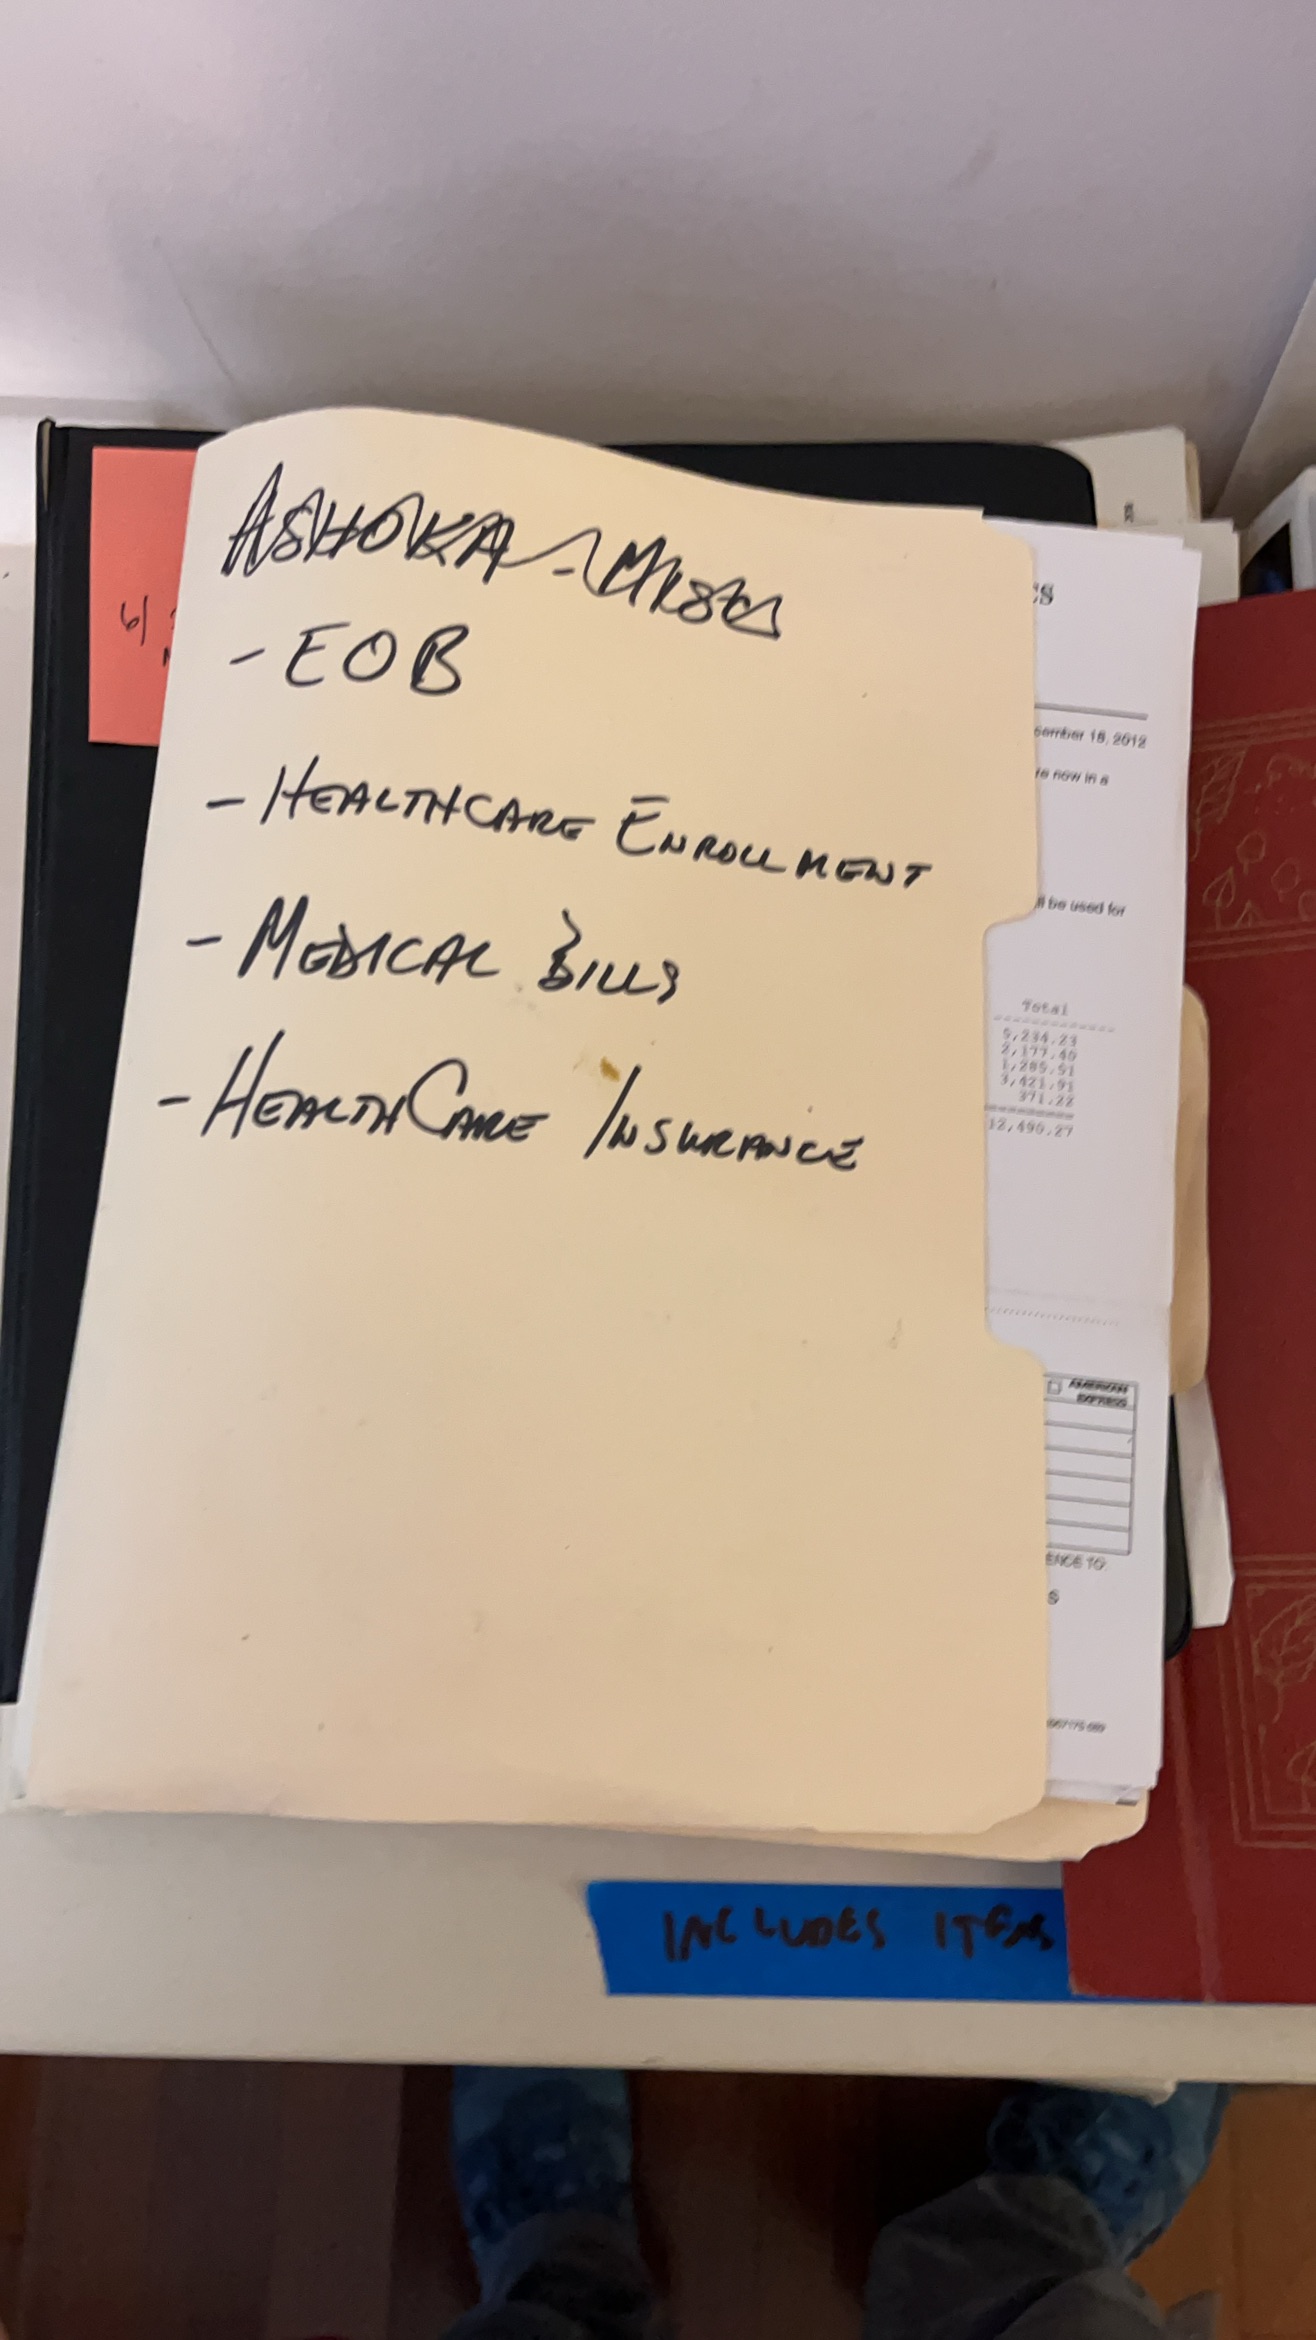 ASHOKA - MISC
- EOB
- HEALTHCARE ENROLLMENT
- MEDICAL BILLS
- HEALTHCARE INSURANCE
6/
CS
ember 18, 2012
re now in a
ll be used for
Total
5,234.23
2,177.40
1,285.51
3,421.91
371.22
12,490.27
AMERICAN
EXPRESS
ENCE TO:
S
INCLUDES ITEMS